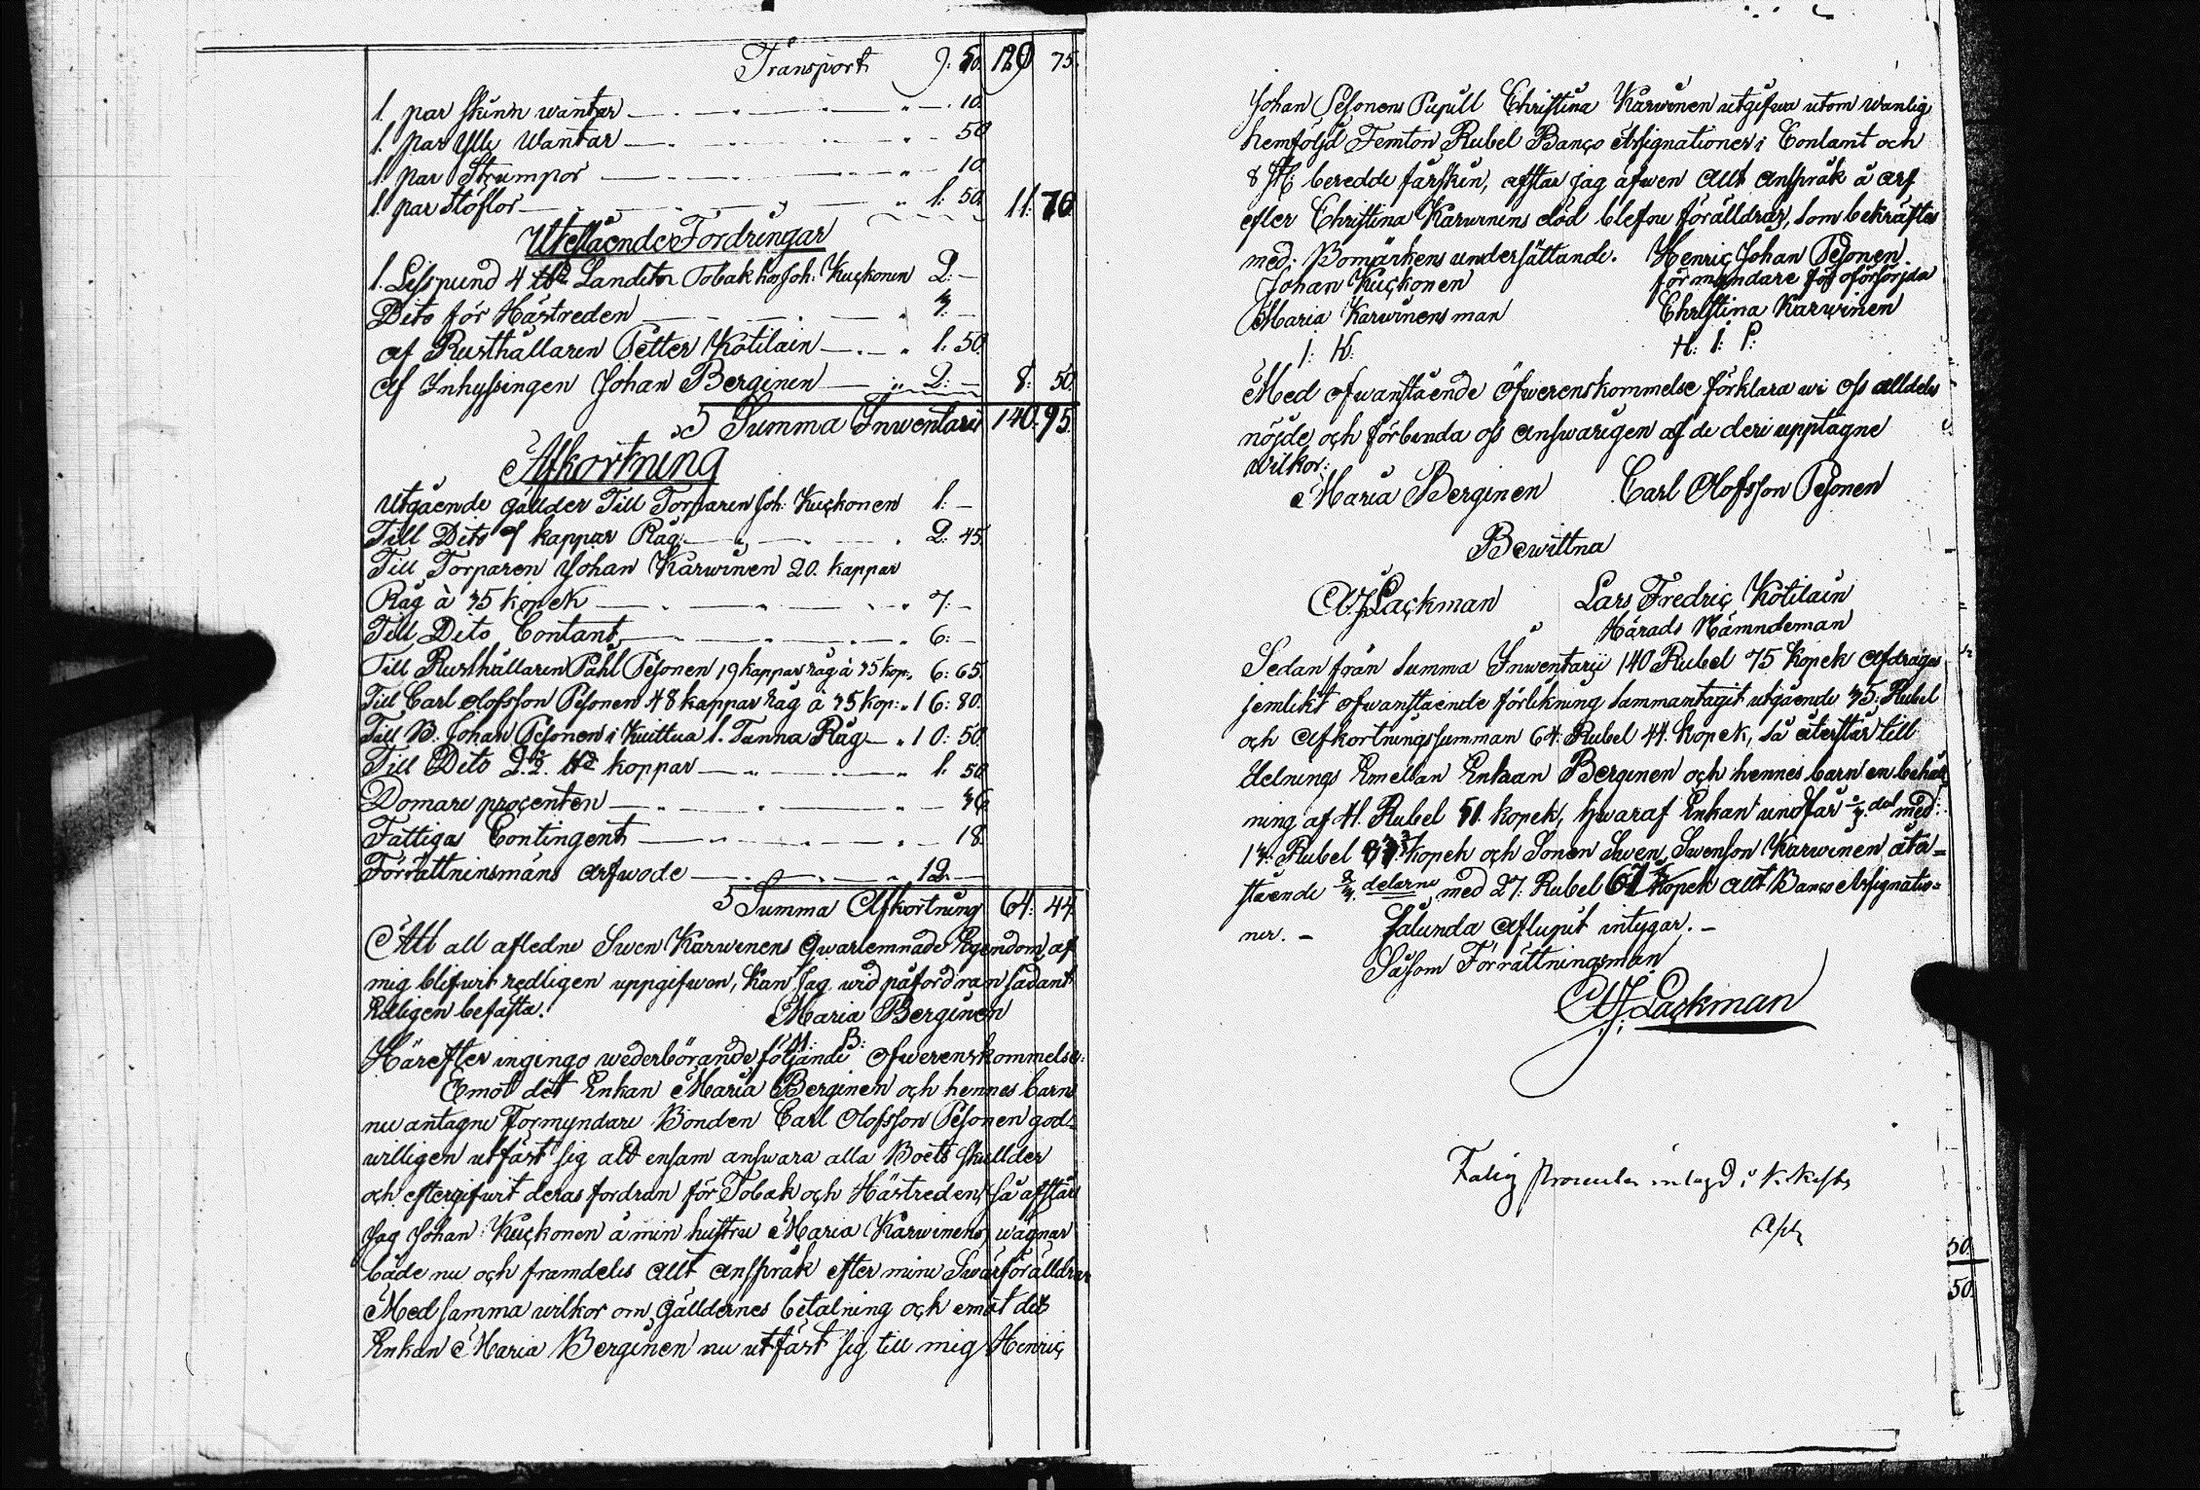 Transport 9. 50. 120 75.
1. par skinn wantar 10.
1. par Ylle Wantar 50
1. par Strumpor 10.
1. par Stöflor 1. 50. 11. 70
Utestående Fordringar
1. Lisspund 4 ℔ Landttn Tobak hos Joh: Kuckonen 2: —
Dito för Hästreden 3. —
af Rusthållaren Petter Kotilain 1. 50.
Af Inhyssingen Johan Berginen 2: — 8: 50.
S Summa Inwentarii 140. 95.
Afkortning
Utgående gällder Till Torparen Joh: Kuckonen 1: —
Till Dito 7 kappar Råg 2: 45.
Till Torparen Johan Karwinen 20. kappar
Råg à 35 kopek 7: —
Till Dito Contant 6: —
Till Rusthållaren Påhl Pesonen 19 kappar råg à 35 kop: 6: 65.
Till Carl Olofsson Pesonen 48 kappar råg à 35 kop: 16: 80.
Till B. Johan Pesonen i Kuittua 1. Tunna Råg 10: 50.
Till Dito 2½. ℔ koppar 1. 50
Domare procenten 36
Fattigas Contingent 18.
Förrättninsmans arfwode 12. —
S Summa Afkortning 64: 44.
Att all afledne Swen Karwinens qwarlemnade Egendom, af
mig blifwit redligen uppgifwen, kan Jag wid påfordran sådant
Edligen befästa. Maria Berginen
M: B:
Härefter ingingo wederbörande följande öfwerenskommelse:
Emot det Enkan Maria Berginen och hennes barns
nu antagne Förmyndare Bonden Carl Olofsson Pesonen god=
willigen utfäst sig att ensam answara alla Boets skullder
och eftergifwit deras fordran för Tobak och Hästreden, så afstår
Jag Johan Kuckonen å min hustru Maria Karwinens, wägnar
både nu och framdeles allt anspråk efter mine Swärföräldrar
Med samma wilkor om gälldernes betalning och emot det
Enkan Maria Berginen nu utfäst sig till mig Henric
Johan Pesonens Pupill Christina Karwinen utgifwa utom wanlig
hemföljd Femton Rubel Banco Assignationer i Contant och
8 St: beredde fårskin, afstår jag äfwen allt anspråk å arf
efter Christina Karwinens död blefne föräldrar, som bekräftes
med Bomärkens undersättande. Henric Johan Pesonen.
Johan Kuckonen förmyndare för oförsörjda
Maria Karwinens man Christina Karwinen
I: K: H: I: P:
Med ofwanstående öfwerenskommelse förklara wi oss alldeles
nöjde och förbinda oss answarigen af de deri upptagne
wilkor:
Maria Berginen Carl Olofsson Pesonen
Bewittna
AJLackman Lars Fredric Kotilain
Härads Nämndeman
Sedan från summa Inwentarii 140 Rubel 75 kopek afdrages
jemlikt ofwanstående förlikning sammantagit utgående 35: Rubel
och afkortningssumman 64. Rubel 44. kopek, så återstår till
delnings Emellan Enkan Berginen och hennes barn en behåll
ning af 41. Rubel 51. kopek, hwaraf Enkan undfår ⅓ del med:
13. Rubel kopek och Sonen Swen Swenson Karwinen åta=
stående ⅔. delarne med 27. Rubel 67 kopek allt Banco Assignatio=
ner. — Salunda aflupit intygar. —
Såsom Förrättningsman
AJLackman
Fattig procenten inlagd i
50.
50.